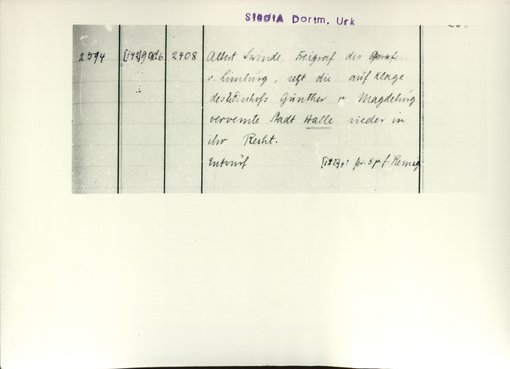 StadtA Dortm. Urk
2594 [142]9 Okt 6. 2408 Albert Swinde, Freigraf des Graf.
v. Limburg, setzt die auf Klage
des Erzbischofs Günther v. Magdeburg
vervemte Stadt Halle wieder in
ihr Recht.
Entwurf